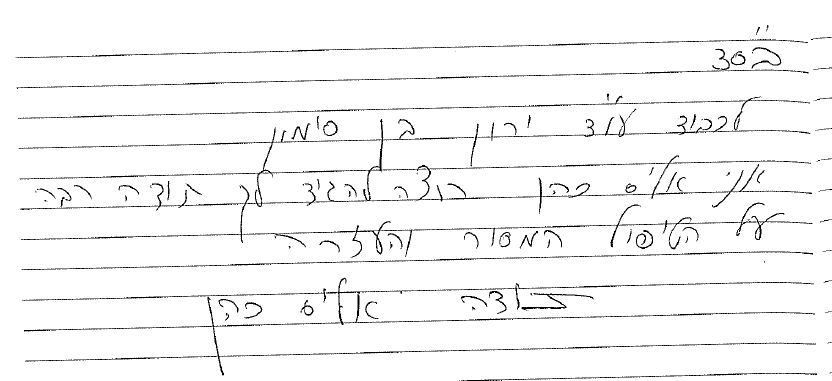 בס"ד
לכבוד עו"ד ירון בן סימון
אני אליס כהן רוצה להגיד לך תודה רבה
על הטיפול המסור והעזרה
תודה אליס כהן